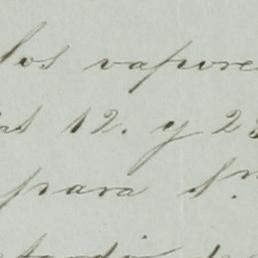 los vapore
as 12. y 23
para S.n